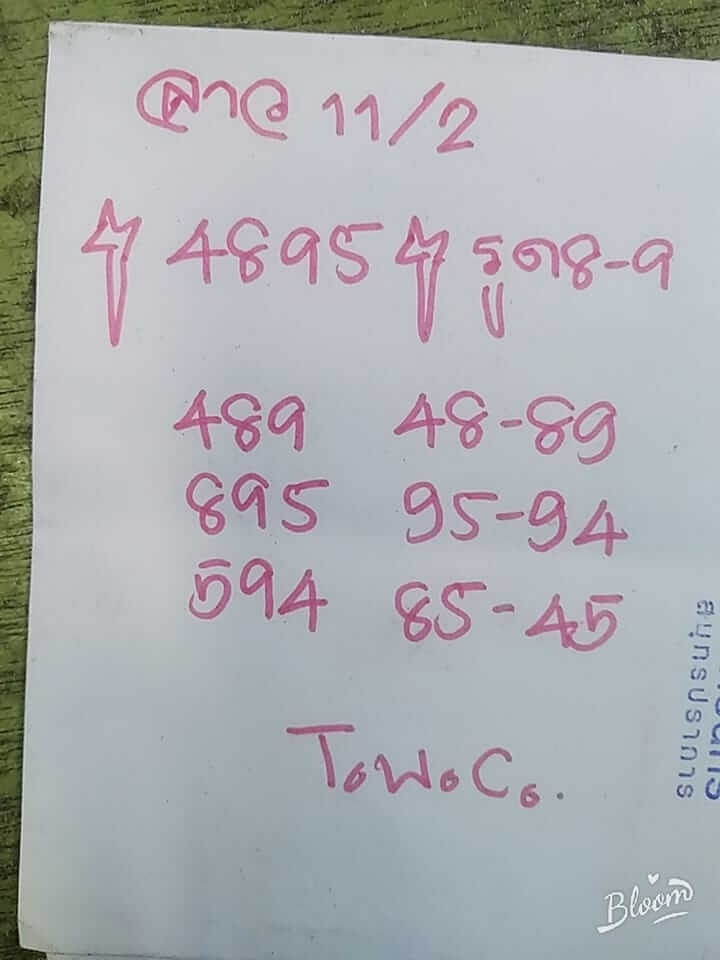 ลาว 11/2
4895 รูด8-9
489 48-89
895 95-94
594 85-45
T.W.C.
สมุทรปราการ
Bloom